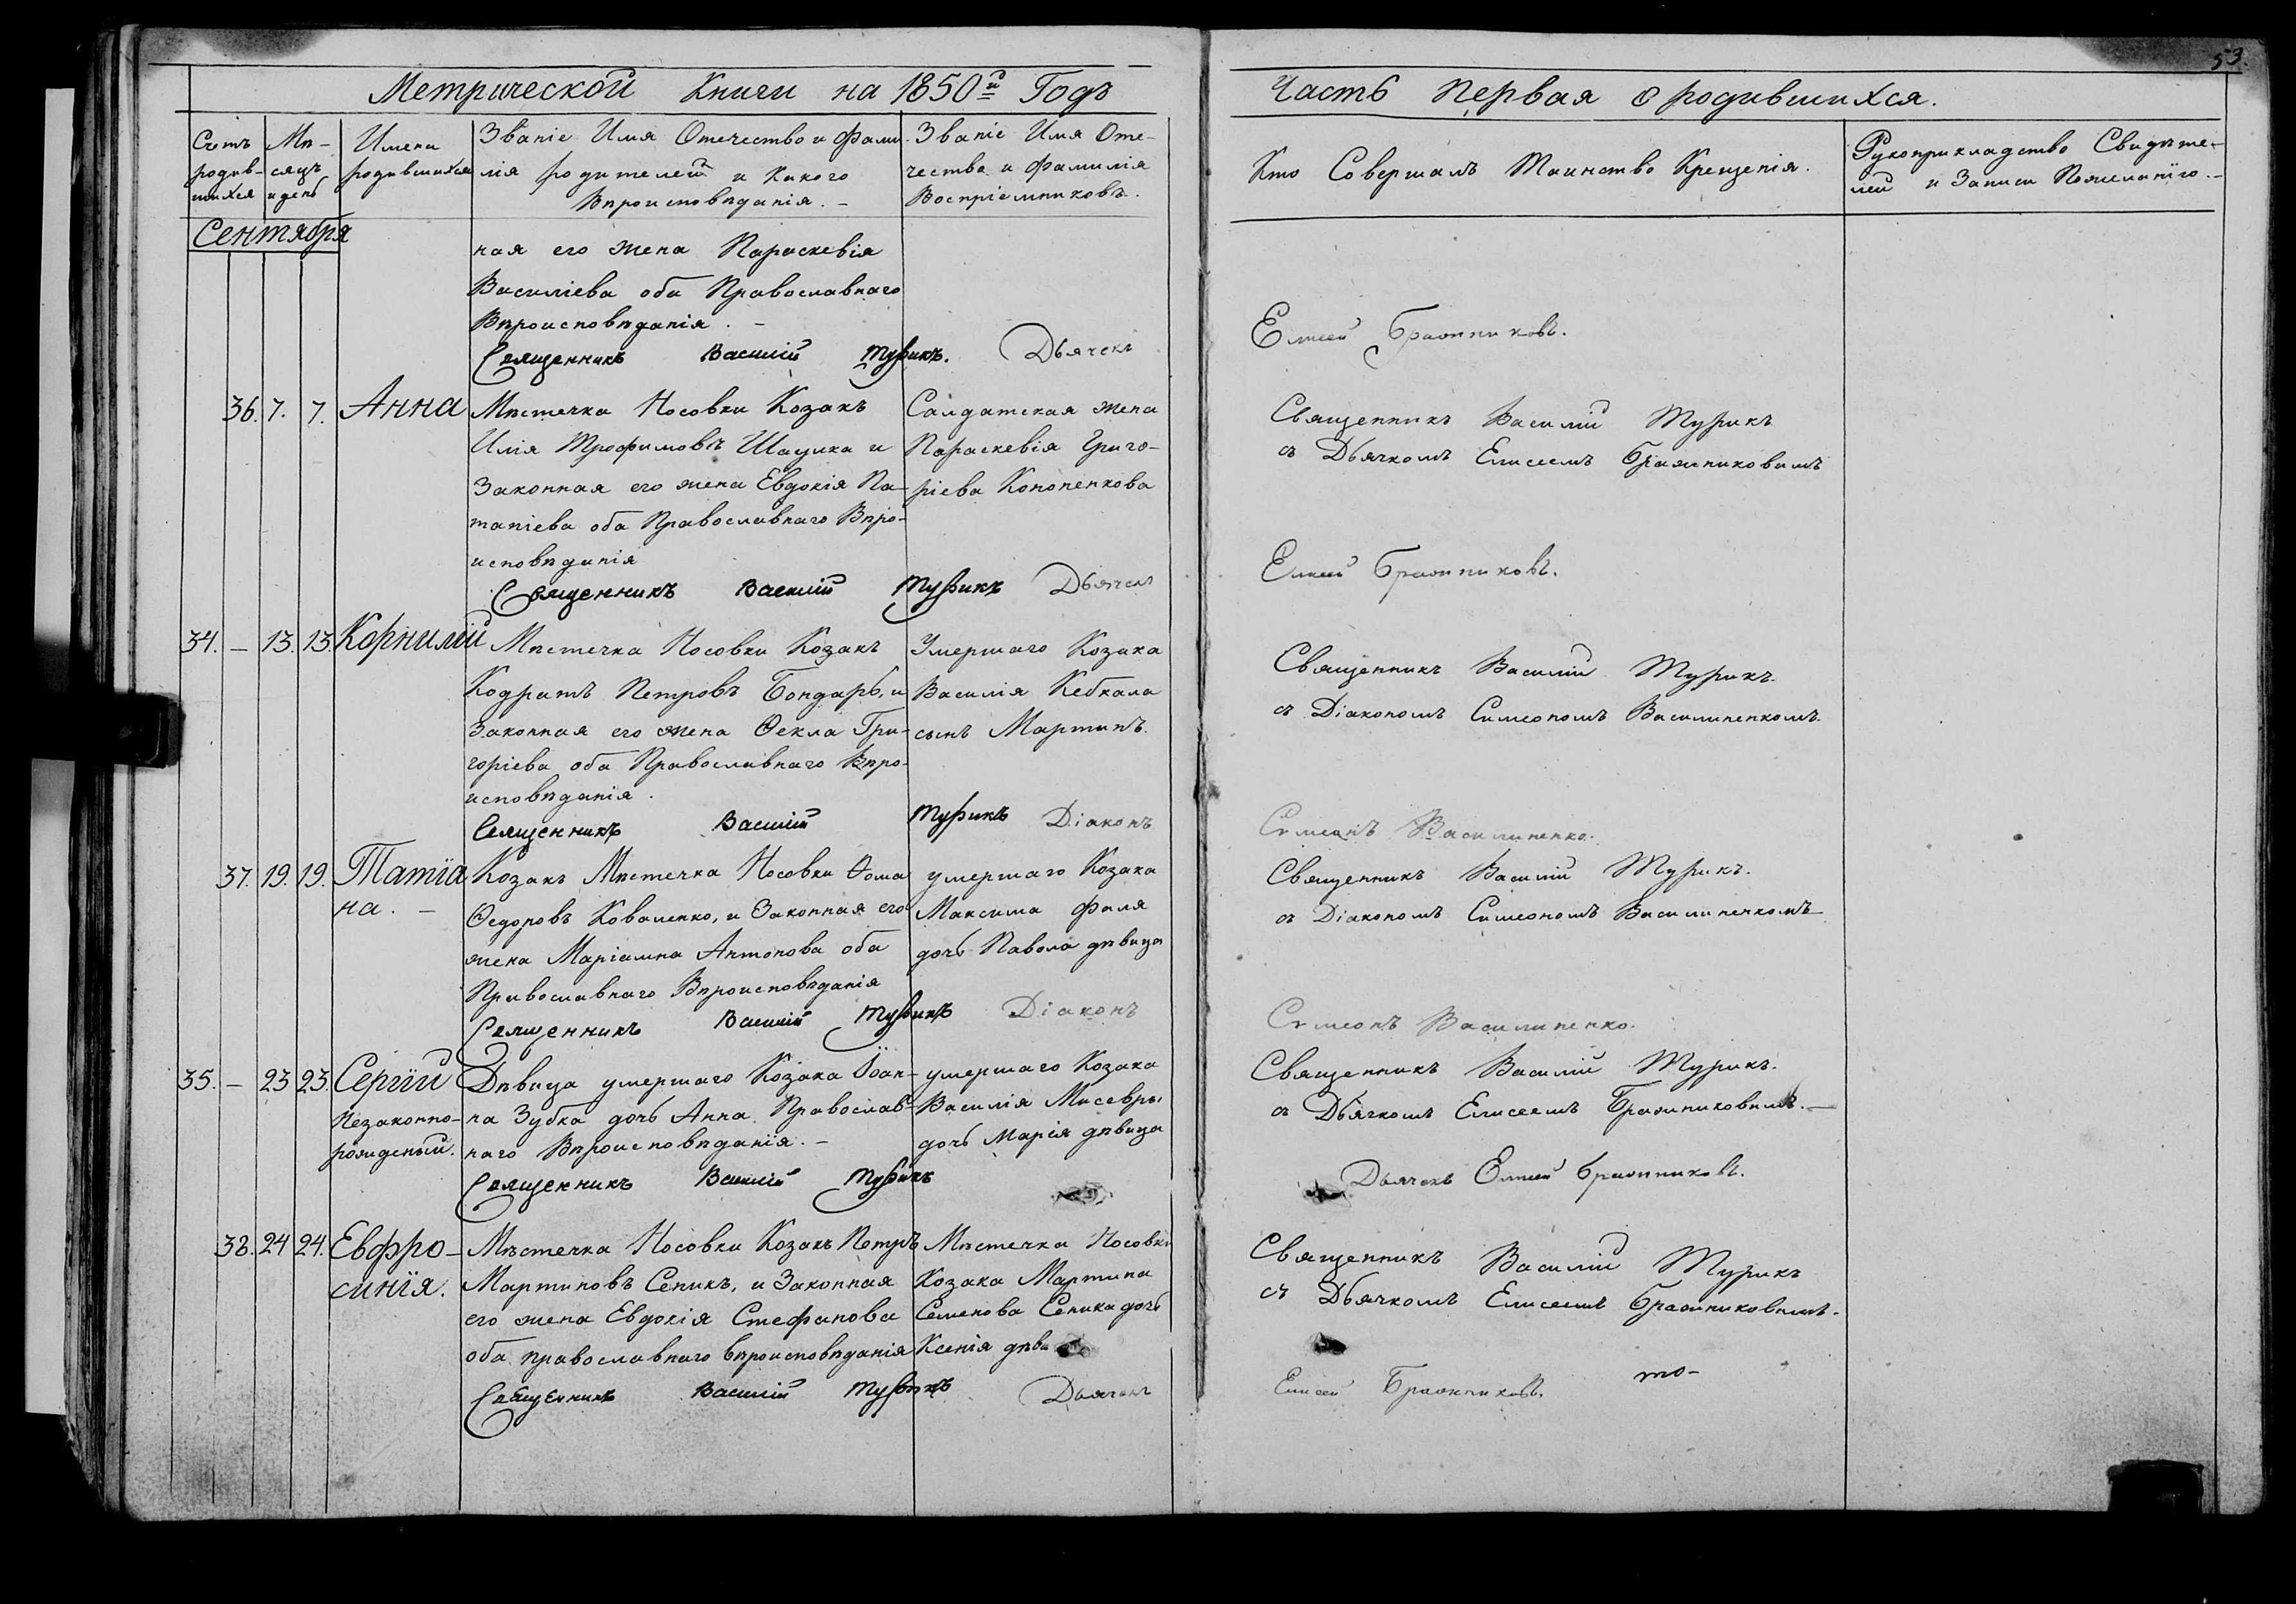 53.
Метрической Книги на 1850й Годъ
Часть Первая о родившихся.
Счетъ родив-шихся
Мѣ-сяцъ и день
Имена родившихся
Званіе Имя Отечество и Фами-
лія родителей и какого
Вѣроисповѣданія. –
Званіе Имя Оте-
чество и Фамилія
Воспріемниковъ.
Кто Совершалъ Таинство Крещенія.
Рукоприкладство Свидѣте-
лей и Записи Пожеланію. –
Сентября
ная его жена Параскевія
Василіева оба Православнаго
Вѣроисповѣданія. –
Священникъ Василій Турикъ. Дьячекъ
Елисей Бражниковъ.
36. 7. 7. Анна
Мѣстечка Носовки Козакъ
Илія Трофимовъ Шацика и
Законная его жена Евдокія По-
тапіева оба Православнаго Вѣро-
исповѣданія
Салдатская жена
Параскевія Григо-
ріева Кононенкова
Священникъ Василій Турикъ
съ Дьячкомъ Елисеемъ Бражниковымъ
Священникъ Василій Турикъ Дьячекъ
Елисей Бражниковъ.
34. – 13. 13. Корнилій
Мѣстечка Носовки Козакъ
Кодратъ Петровъ Бондарь, и
Законная его жена Ѳекла Гри-
горіева оба Православнаго Вѣро-
исповѣданія.
Умершаго Козака
Василія Кебкала
сынъ Мартинъ.
Священникъ Василій Турикъ.
съ Діакономъ Симеономъ Василиненкомъ.
Священникъ Василій Турикъ Діаконъ
Симеонъ Василиненко.
37. 19. 19. Татіа
на. –
Козакъ Мѣстечка Носовки Ѳома
Ѳедоровъ Коваленко, и Законная его
жена Маріамна Антонова оба
Православнаго Вѣроисповѣданія
умершаго Козака
Максима Фаля
дочь Павола дѣвица
Священникъ Василій Турикъ.
съ Діакономъ Симеономъ Василиненкомъ
Священникъ Василій Турикъ Діаконъ
Симеонъ Василиненко.
35. – 23 23. Сергій
Незаконно-
рожденый.
Дѣвица умершаго Козака Іоан-
на Зубка дочь Анна Православ-
наго Вѣроисповѣданія. –
умершаго Козака
Василія Мисевры
дочь Марія дѣвица
Священникъ Василій Турикъ.
съ Дьячкомъ Елисеемъ Бражниковымъ. –
Священникъ Василій Турикъ
Дьячекъ Елисей Бражниковъ.
38. 24 24. Евфро-
синія.
Мѣстечка Носовки Козакъ Петръ
Мартиновъ Сеникъ, и Законная
его жена Евдокія Стефанова
оба православнаго вѣроисповѣданія
Мѣстечка Носовки
Козака Мартина
Семенова Сеника дочь
Ксенія дѣви
Священникъ Василій Турикъ
съ Дьячкомъ Елисеемъ Бражниковымъ.
Священникъ Василій Турикъ Дьячекъ
Елисей Бражниковъ. то-